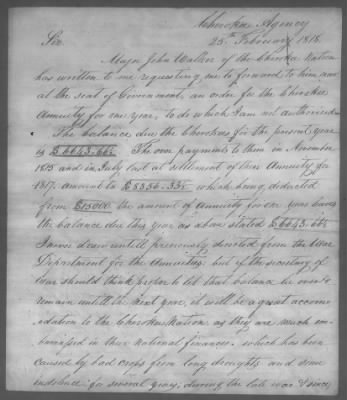 Cherokee Agency
25th February 1818.
Sir
Major John Walker of the Cherokee Nation
has written to me requesting me to forward to him now
at the seat of Government, an order for the Cherokee
Annuity for one year, to do which I am not authorised.
The balance due the Cherokees for the present year
is $6643.66½ The over payments to them in November
1815 and in July last at settlement of their Annuity for
1817, amount to $8356.33½ which being deducted
from $15000 the amount of Annuity for one year leaves
the balance due this year as above stated $6643.66½
I was desirous untill previously directed from the War
Department for the Annuities: but if the secretary of
war should think proper to let that balance be over &
remain untill the next year, it will be a great accom-
-odation to the Cherokee Nation as they are much em-
-barrassed in their national finances, which has been
caused by bad crops from long droughts and some
indolence for several years, during the late war & since